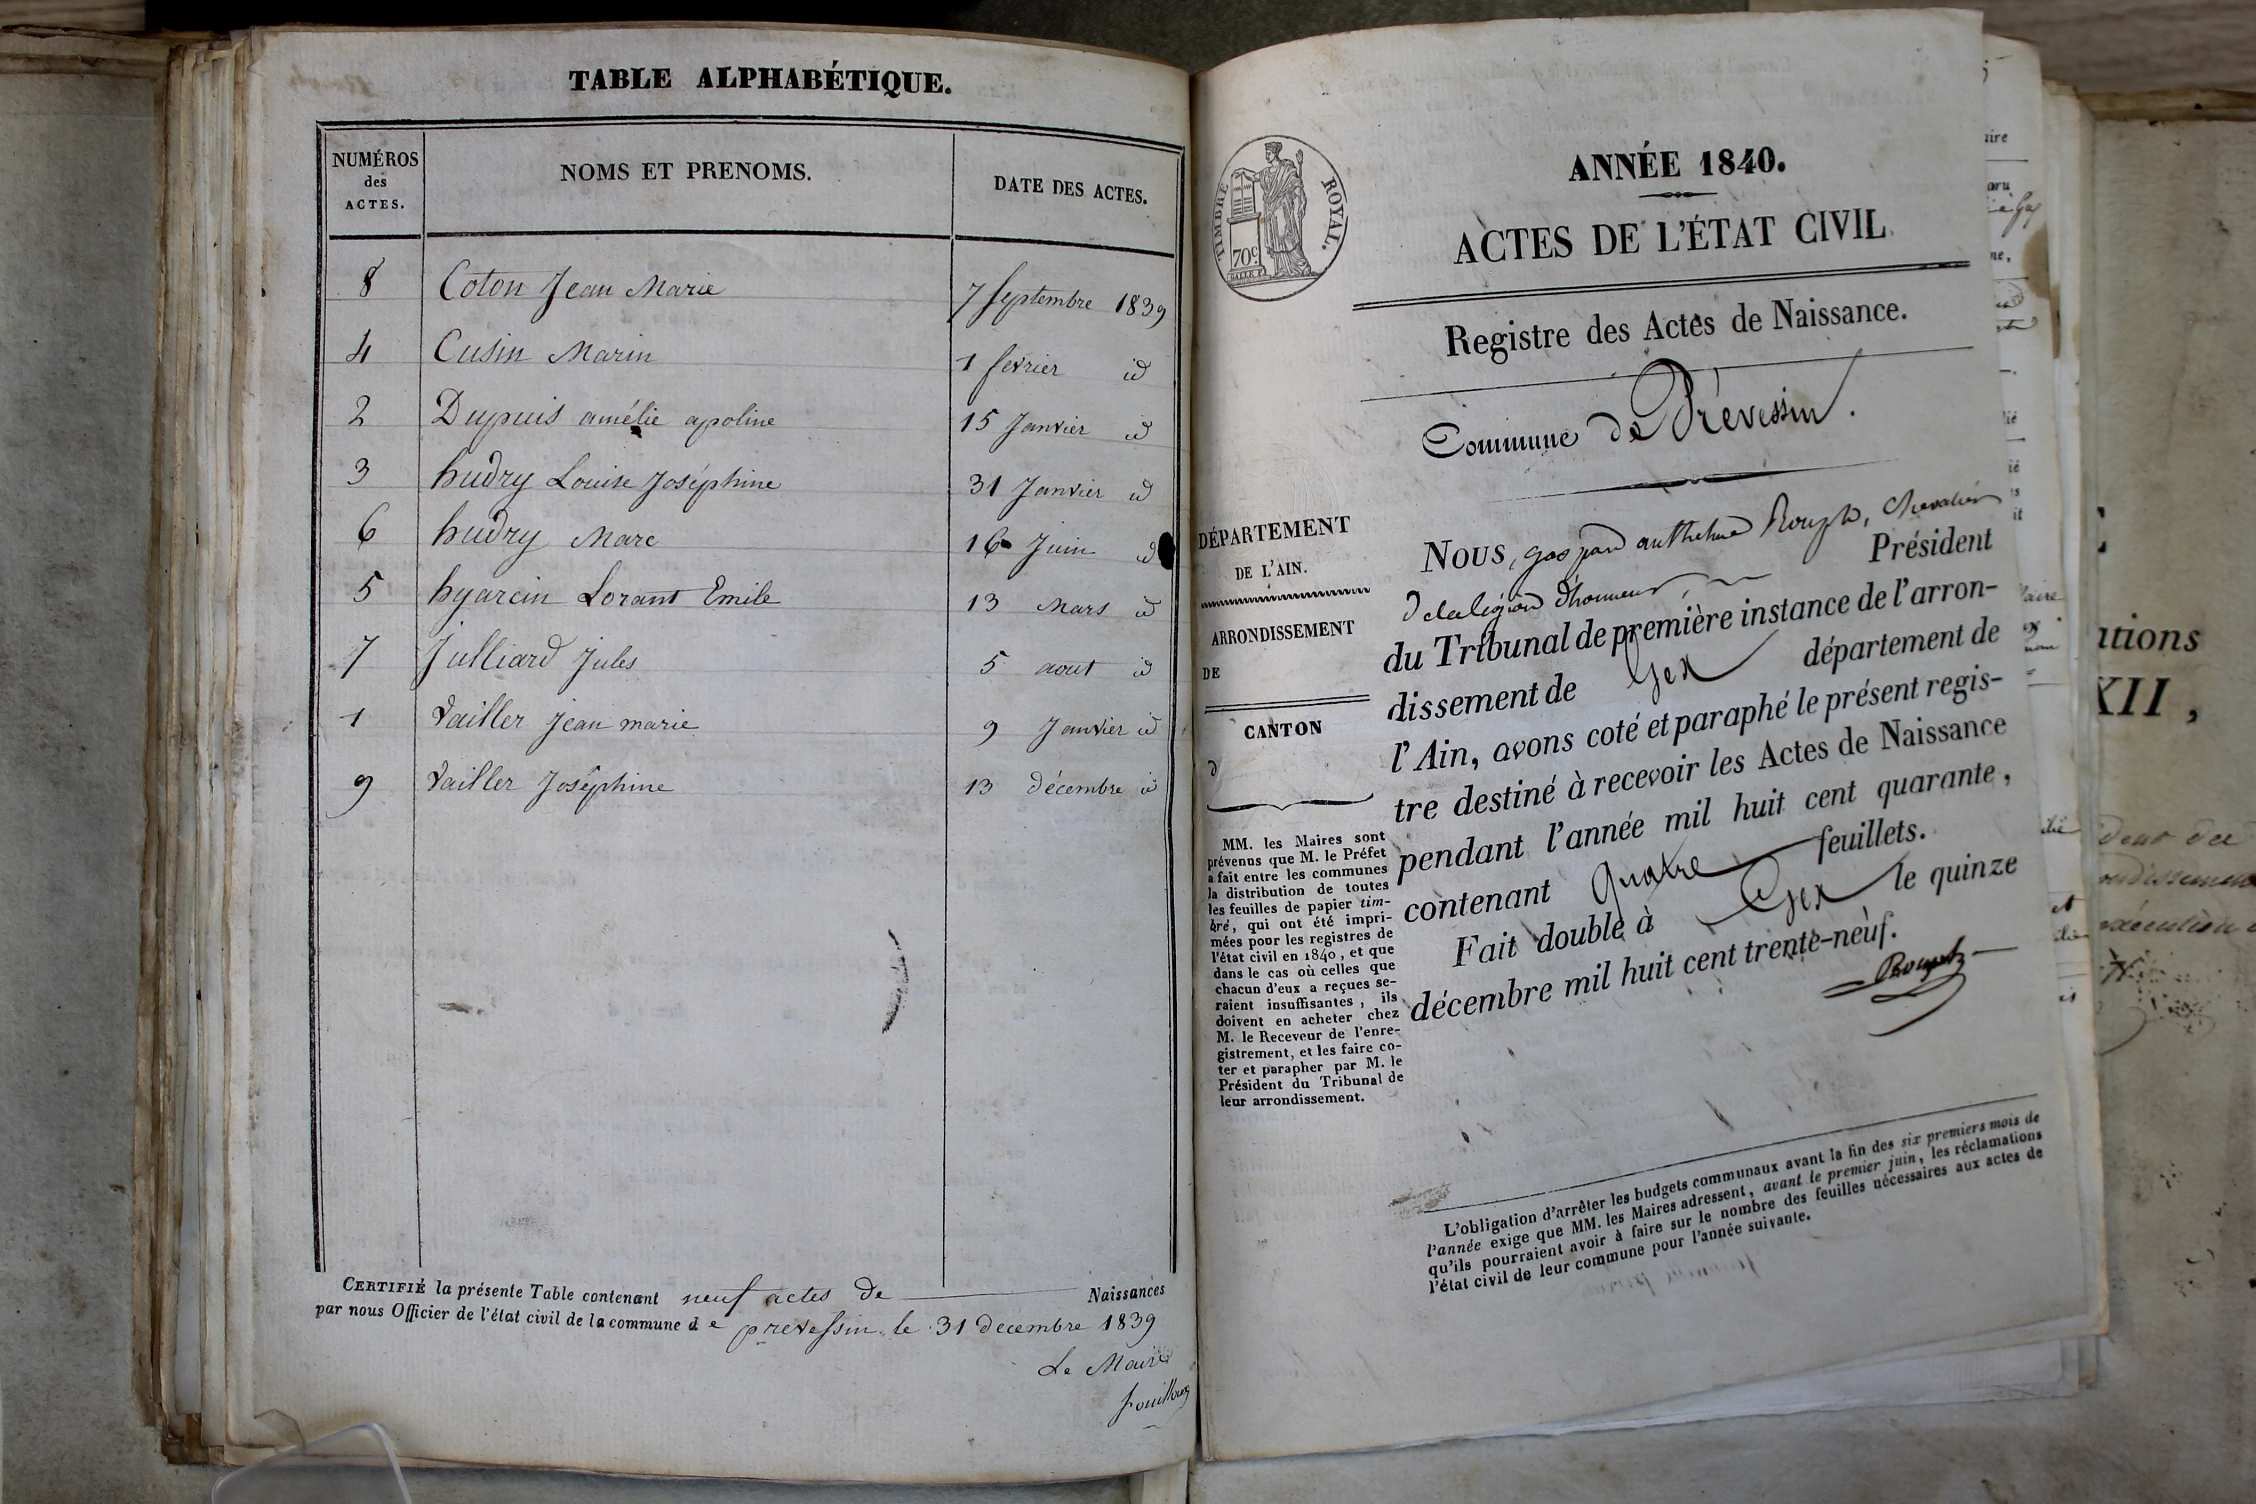 TABLE ALPHABÉTIQUE.
NUMÉROS des ACTES.
NOMS ET PRENOMS.
DATE DES ACTES.
8 Coton Jean Marie 7 septembre 1839
4 Cusin Marin 1 fevrier id
2 Dupuis amélie apoline 15 Janvier id
3 hudry Louise Joséphine 31 Janvier id
6 hudry Marc 16 Juin id
5 hyarcin Lorant Emile 13 Mars id
7 Julliard Jules 5 aout id
1 Vailler Jean marie 9 Janvier id
9 Vailler Joséphine 13 décembre id
CERTIFIÉ la présente Table contenant neuf actes de Naissances
par nous Officier de l'état civil de la commune de prevessin le 31 decembre 1839
Le Maire
fouilloux
TIMBRE ROYAL.
70c.
ANNÉE 1840.
ACTES DE L'ÉTAT CIVIL
Registre des Actes de Naissance.
Commune de Prévessin.
DÉPARTEMENT
DE L'AIN.
ARRONDISSEMENT
DE
CANTON
d
MM. les Maires sont
prévenus que M. le Préfet
a fait entre les communes
la distribution de toutes
les feuilles de papier tim-
bré, qui ont été impri-
mées pour les registres de
l'état civil en 1840, et que
dans le cas où celles que
chacun d'eux a reçues se-
raient insuffisantes, ils
doivent en acheter chez
M. le Receveur de l'enre-
gistrement, et les faire co-
ter et parapher par M. le
Président du Tribunal de
leur arrondissement.
NOUS, gaspard anthelme Rouyer, Chevalier
de la légion d'honneur, Président
du Tribunal de première instance de l'arron-
dissement de Gex département de
l'Ain, avons coté et paraphé le présent regis-
tre destiné à recevoir les Actes de Naissance
pendant l'année mil huit cent quarante,
contenant Quatre feuillets.
Fait double à Gex le quinze
décembre mil huit cent trente-neuf.
L'obligation d'arrêter les budgets communaux avant la fin des six premiers mois de
l'année exige que MM. les Maires adressent, avant le premier juin, les réclamations
qu'ils pourraient avoir à faire sur le nombre des feuilles nécessaires aux actes de
l'état civil de leur commune pour l'année suivante.
ations
XII,